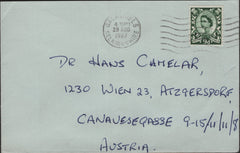 4 PM
29 AUG
1967
DR HANS CAMELAR,
1230 WIEN 23, ATZGERSDORF,
CANAVESEGASSE 9-15/11/11/8
AUSTRIA.